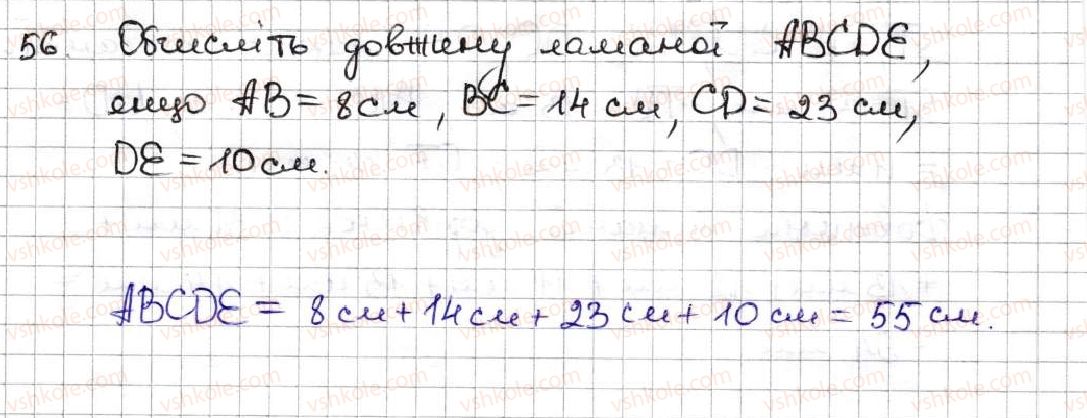 56. Обчисліть довжину ламаної ABCDE,
якщо AB = 8 см, BC = 14 см, CD = 23 см,
DE = 10 см.
ABCDE = 8 см + 14 см + 23 см + 10 см = 55 см.